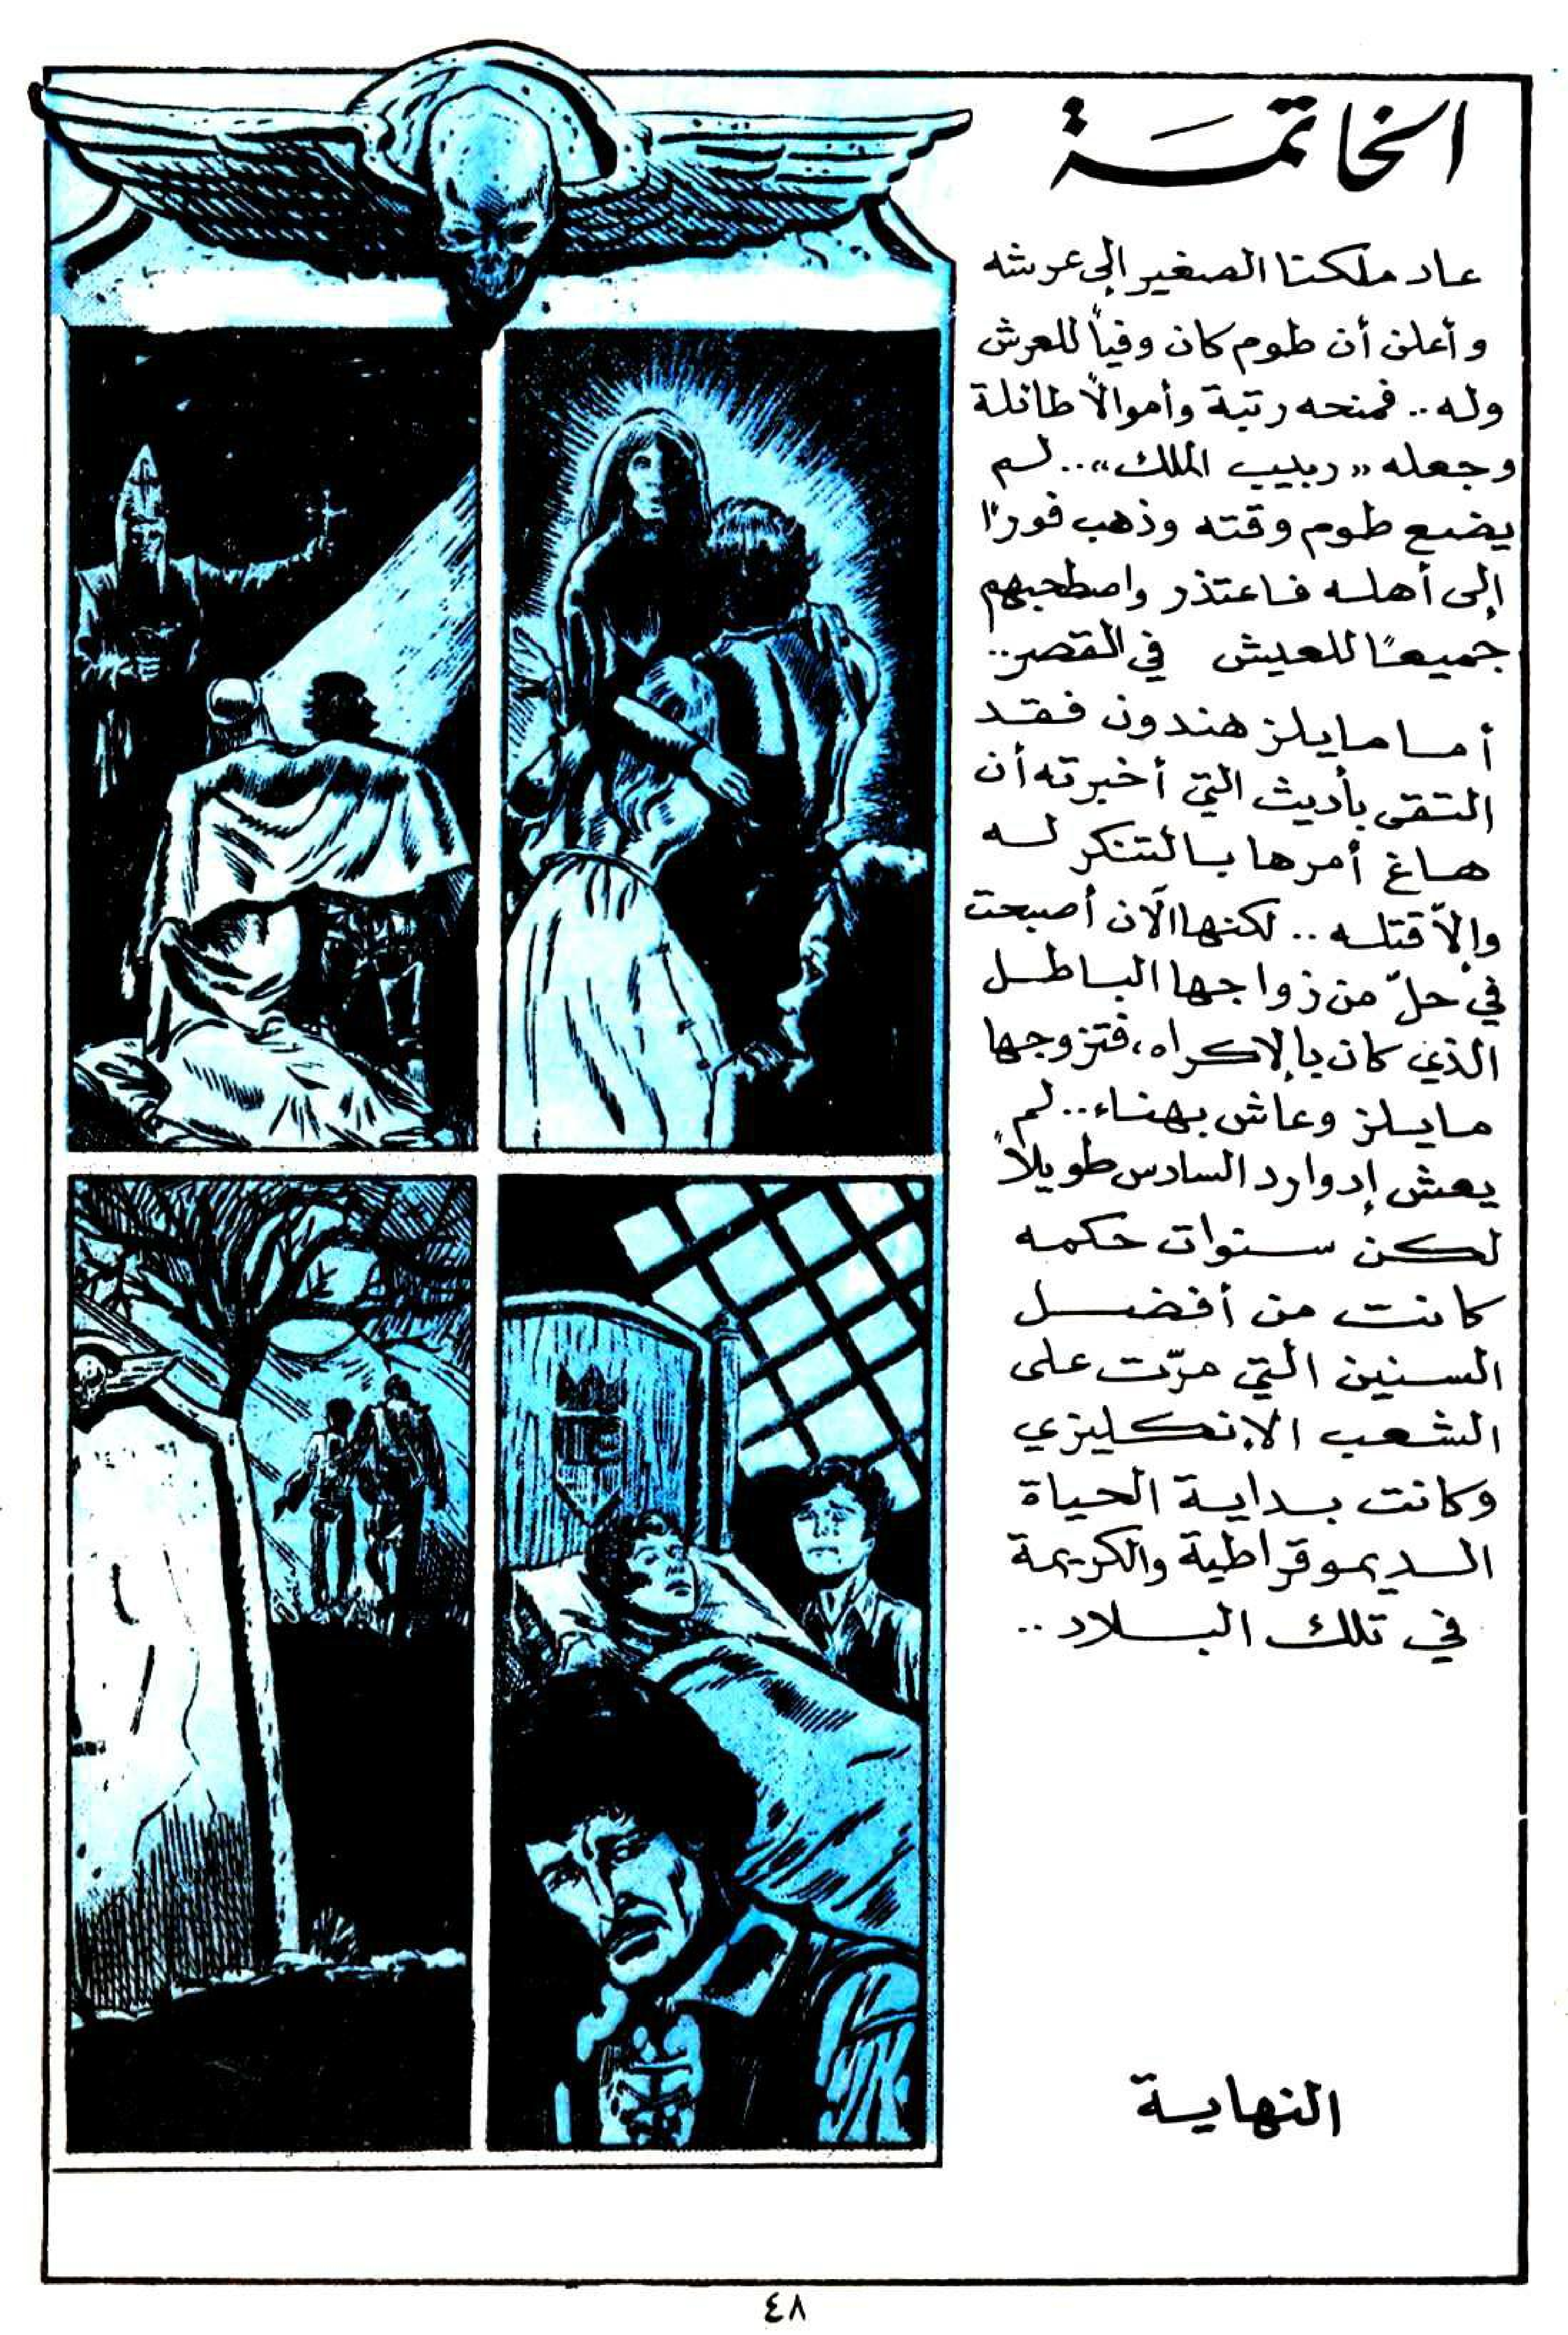 الخاتمة
عاد ملكنا الصغير إلى عرشه
وأعلن أن طوم كان وفياً للعرش
وله.. فمنحه رتبة وأموالاً طائلة
وجعله «ربيب الملك»..لم
يضع طوم وقته وذهب فورًا
إلى أهله فاعتذر واصطحبهم
جميعًا للعيش في القصر..
أما مايلز هندون فقد
التقى بأديث التي أخبرته أن
هاغ أمرها بالتنكر له
وإلاّ قتله.. لكنها الآن أصبحت
في حلّ من زواجها الباطل
الذي كان بالإكراه، فتزوجها
مايلز وعاش بهناء..لم
يعش إدوارد السادس طويلاً
لكن سنوات حكمه
كانت من أفضل
السنين التي مرّت على
الشعب الإنكليزي
وكانت بداية الحياة
الديموقراطية والكريمة
في تلك البلاد..
النهاية
٤٨